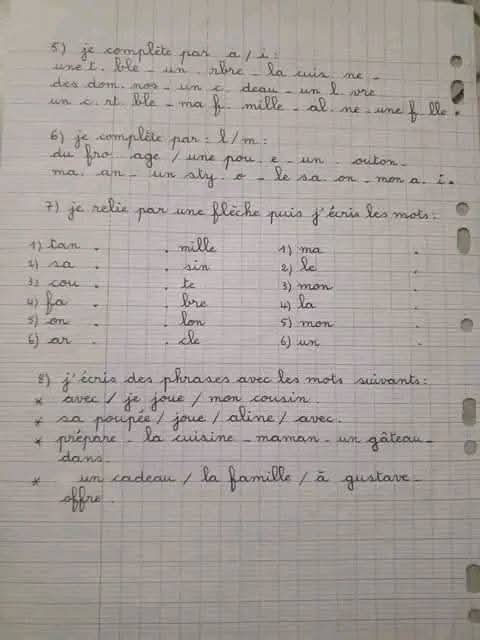 5) je complète par a / i :
une t. ble - un . rbre - la cuis. ne -
des dom. nos - un c. deau - un l. vre
un c. rt. ble - ma f. mille - al. ne - une f. lle .
6) je complète par : l / m :
du fro. age / une pou. e - un . outon -
ma. an - un sty. o - le sa. on - mon a. i.
7) je relie par une flèche puis j'écris les mots :
1) tan . . mille 1) ma .
2) sa . . sin 2) le .
3) cou . . te 3) mon .
4) fa . . bre 4) la .
5) on . . lon 5) mon .
6) ar . . cle 6) un .
8) j'écris des phrases avec les mots suivants :
* avec / je joue / mon cousin .
* sa poupée / joue / aline / avec .
* prépare - la cuisine - maman - un gâteau -
dans -
* un cadeau / la famille / à gustave -
offre .